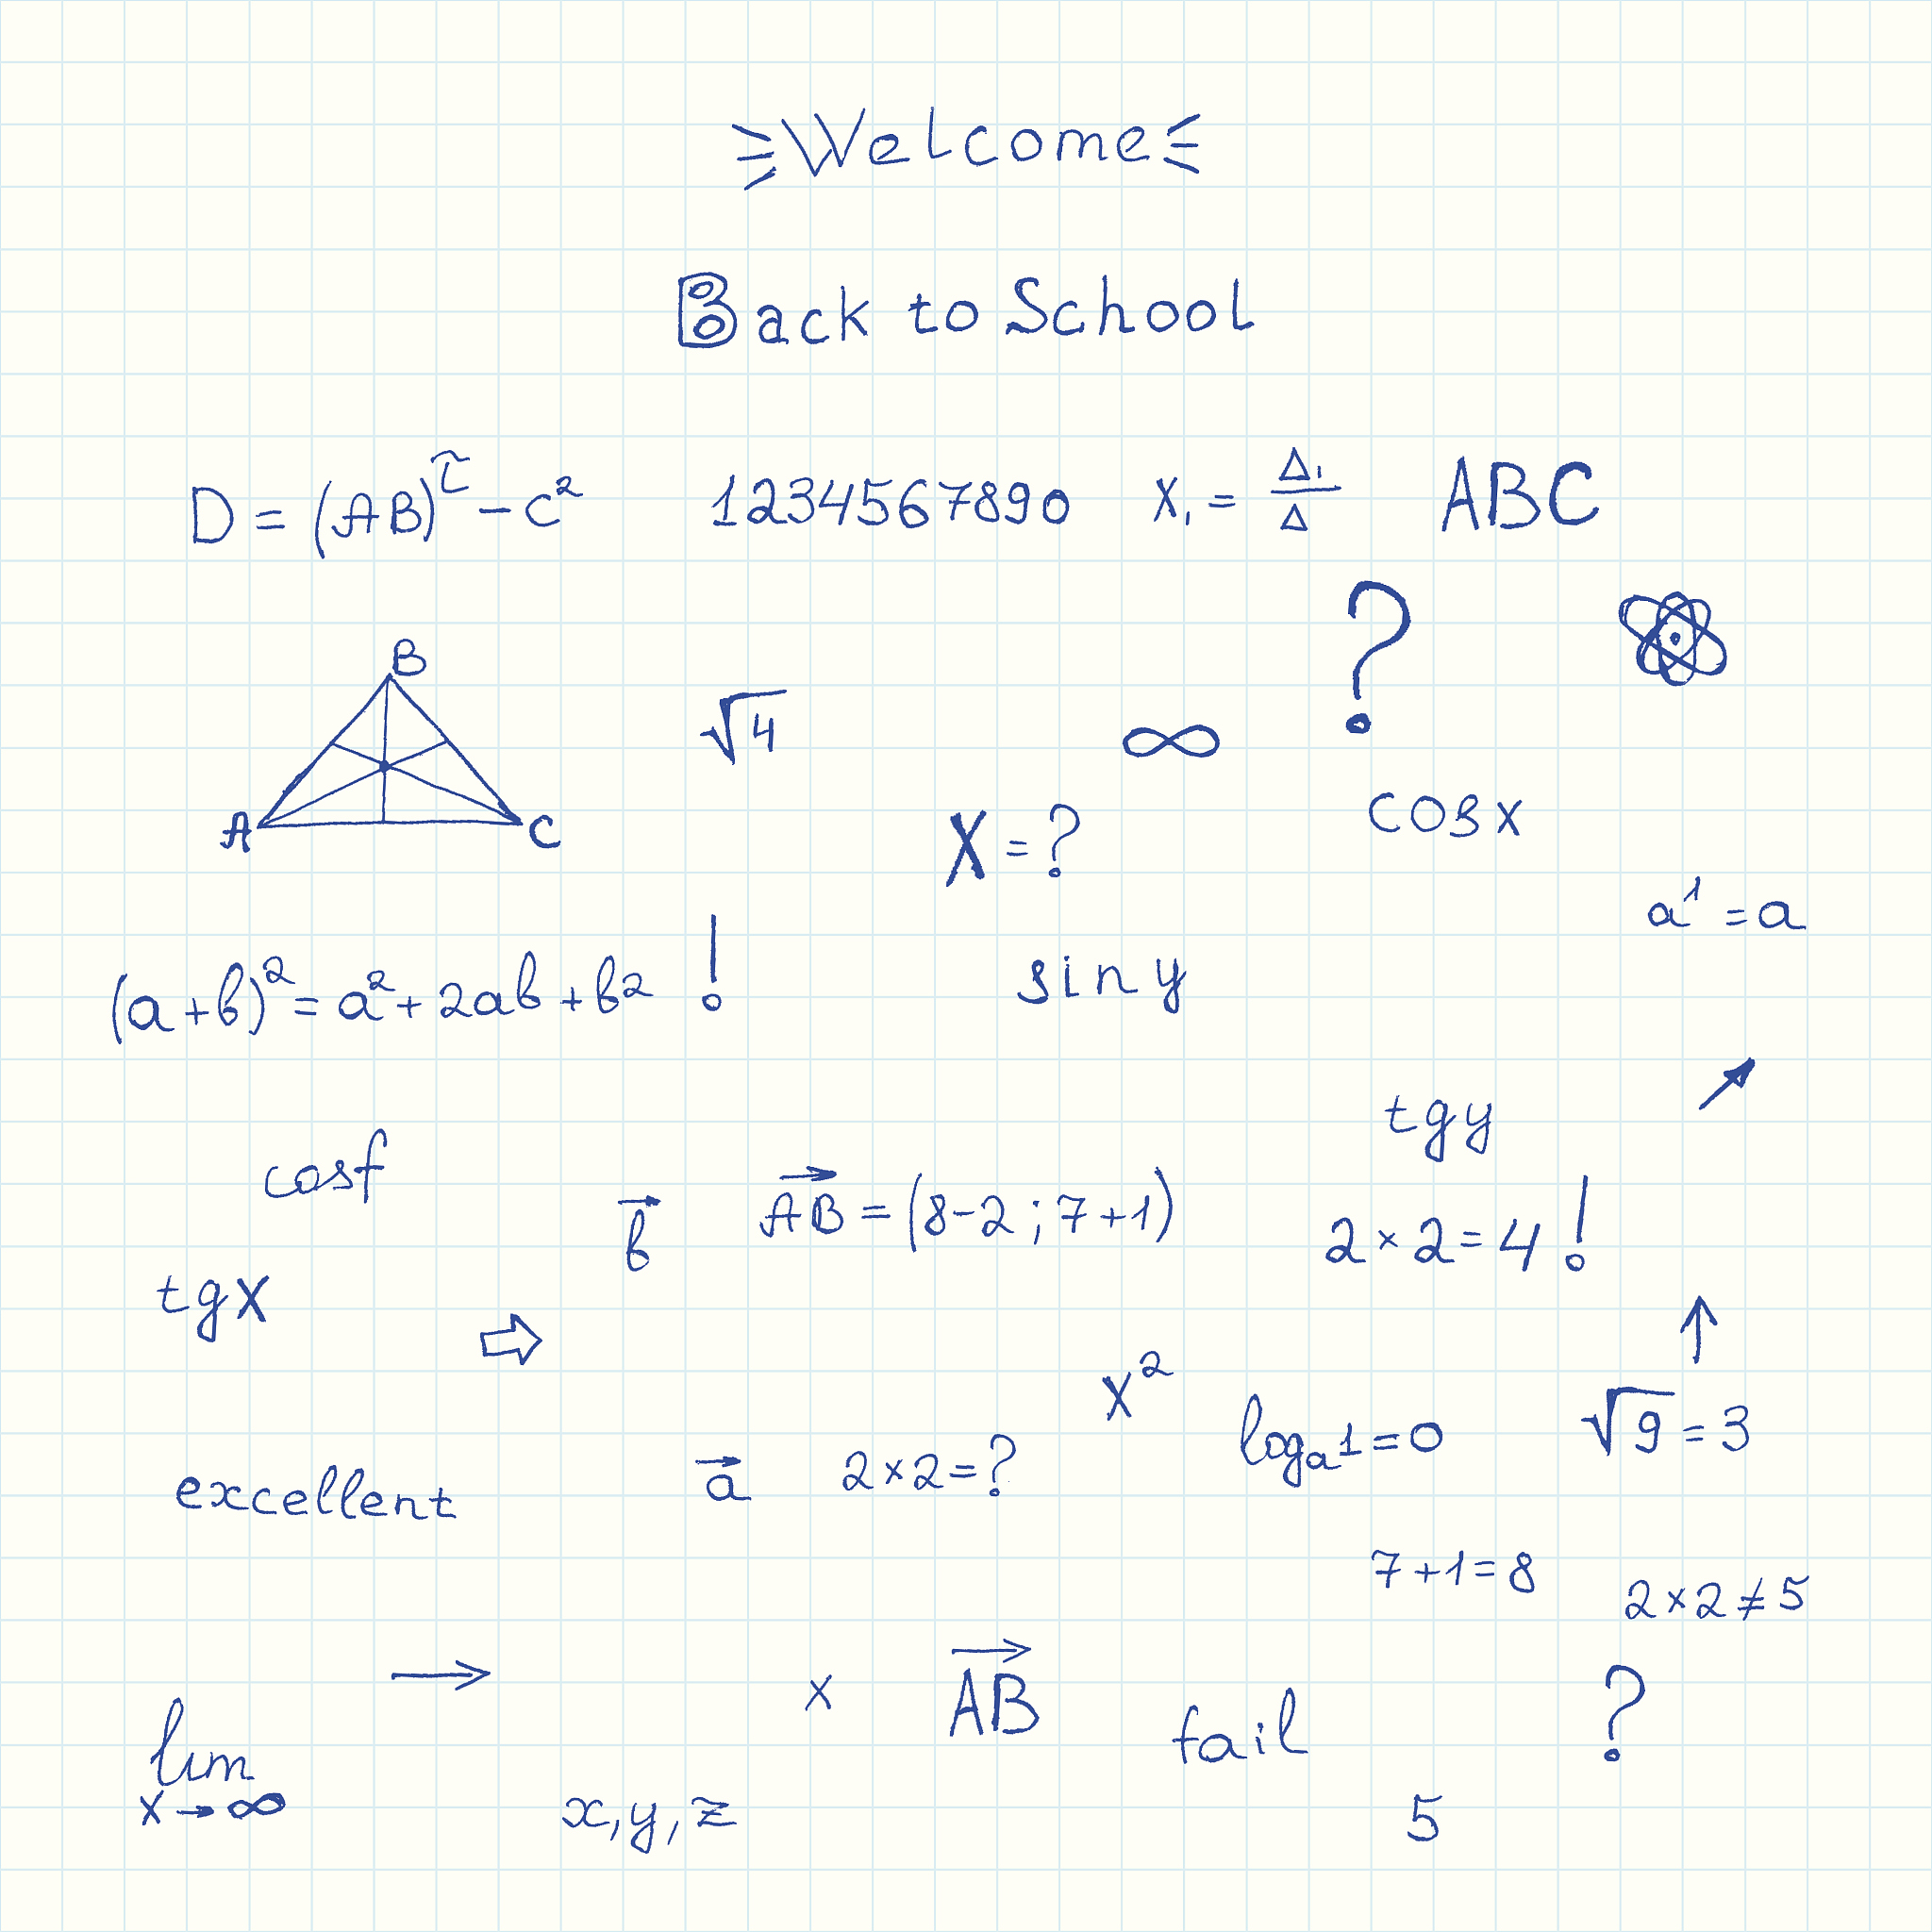 Welcome
Back to School
D = (AB)^τ - c²
1234567890
x₁ = Δ₁/Δ
ABC
B
A
C
√4
∞
?
x = ?
cos x
a¹ = a
(a+b)² = a² + 2ab + b² !
sin y
tg y
cosf
b⃗
A⃗B⃗ = (8-2; 7+1)
2 × 2 = 4 !
tg x
⇨
x²
logₐ1 = 0
√9 = 3
excellent
a⃗
2×2=?
7+1=8
2×2≠5
→
x
A⃗B⃗
fail
?
lim
x→∞
x, y, z
5